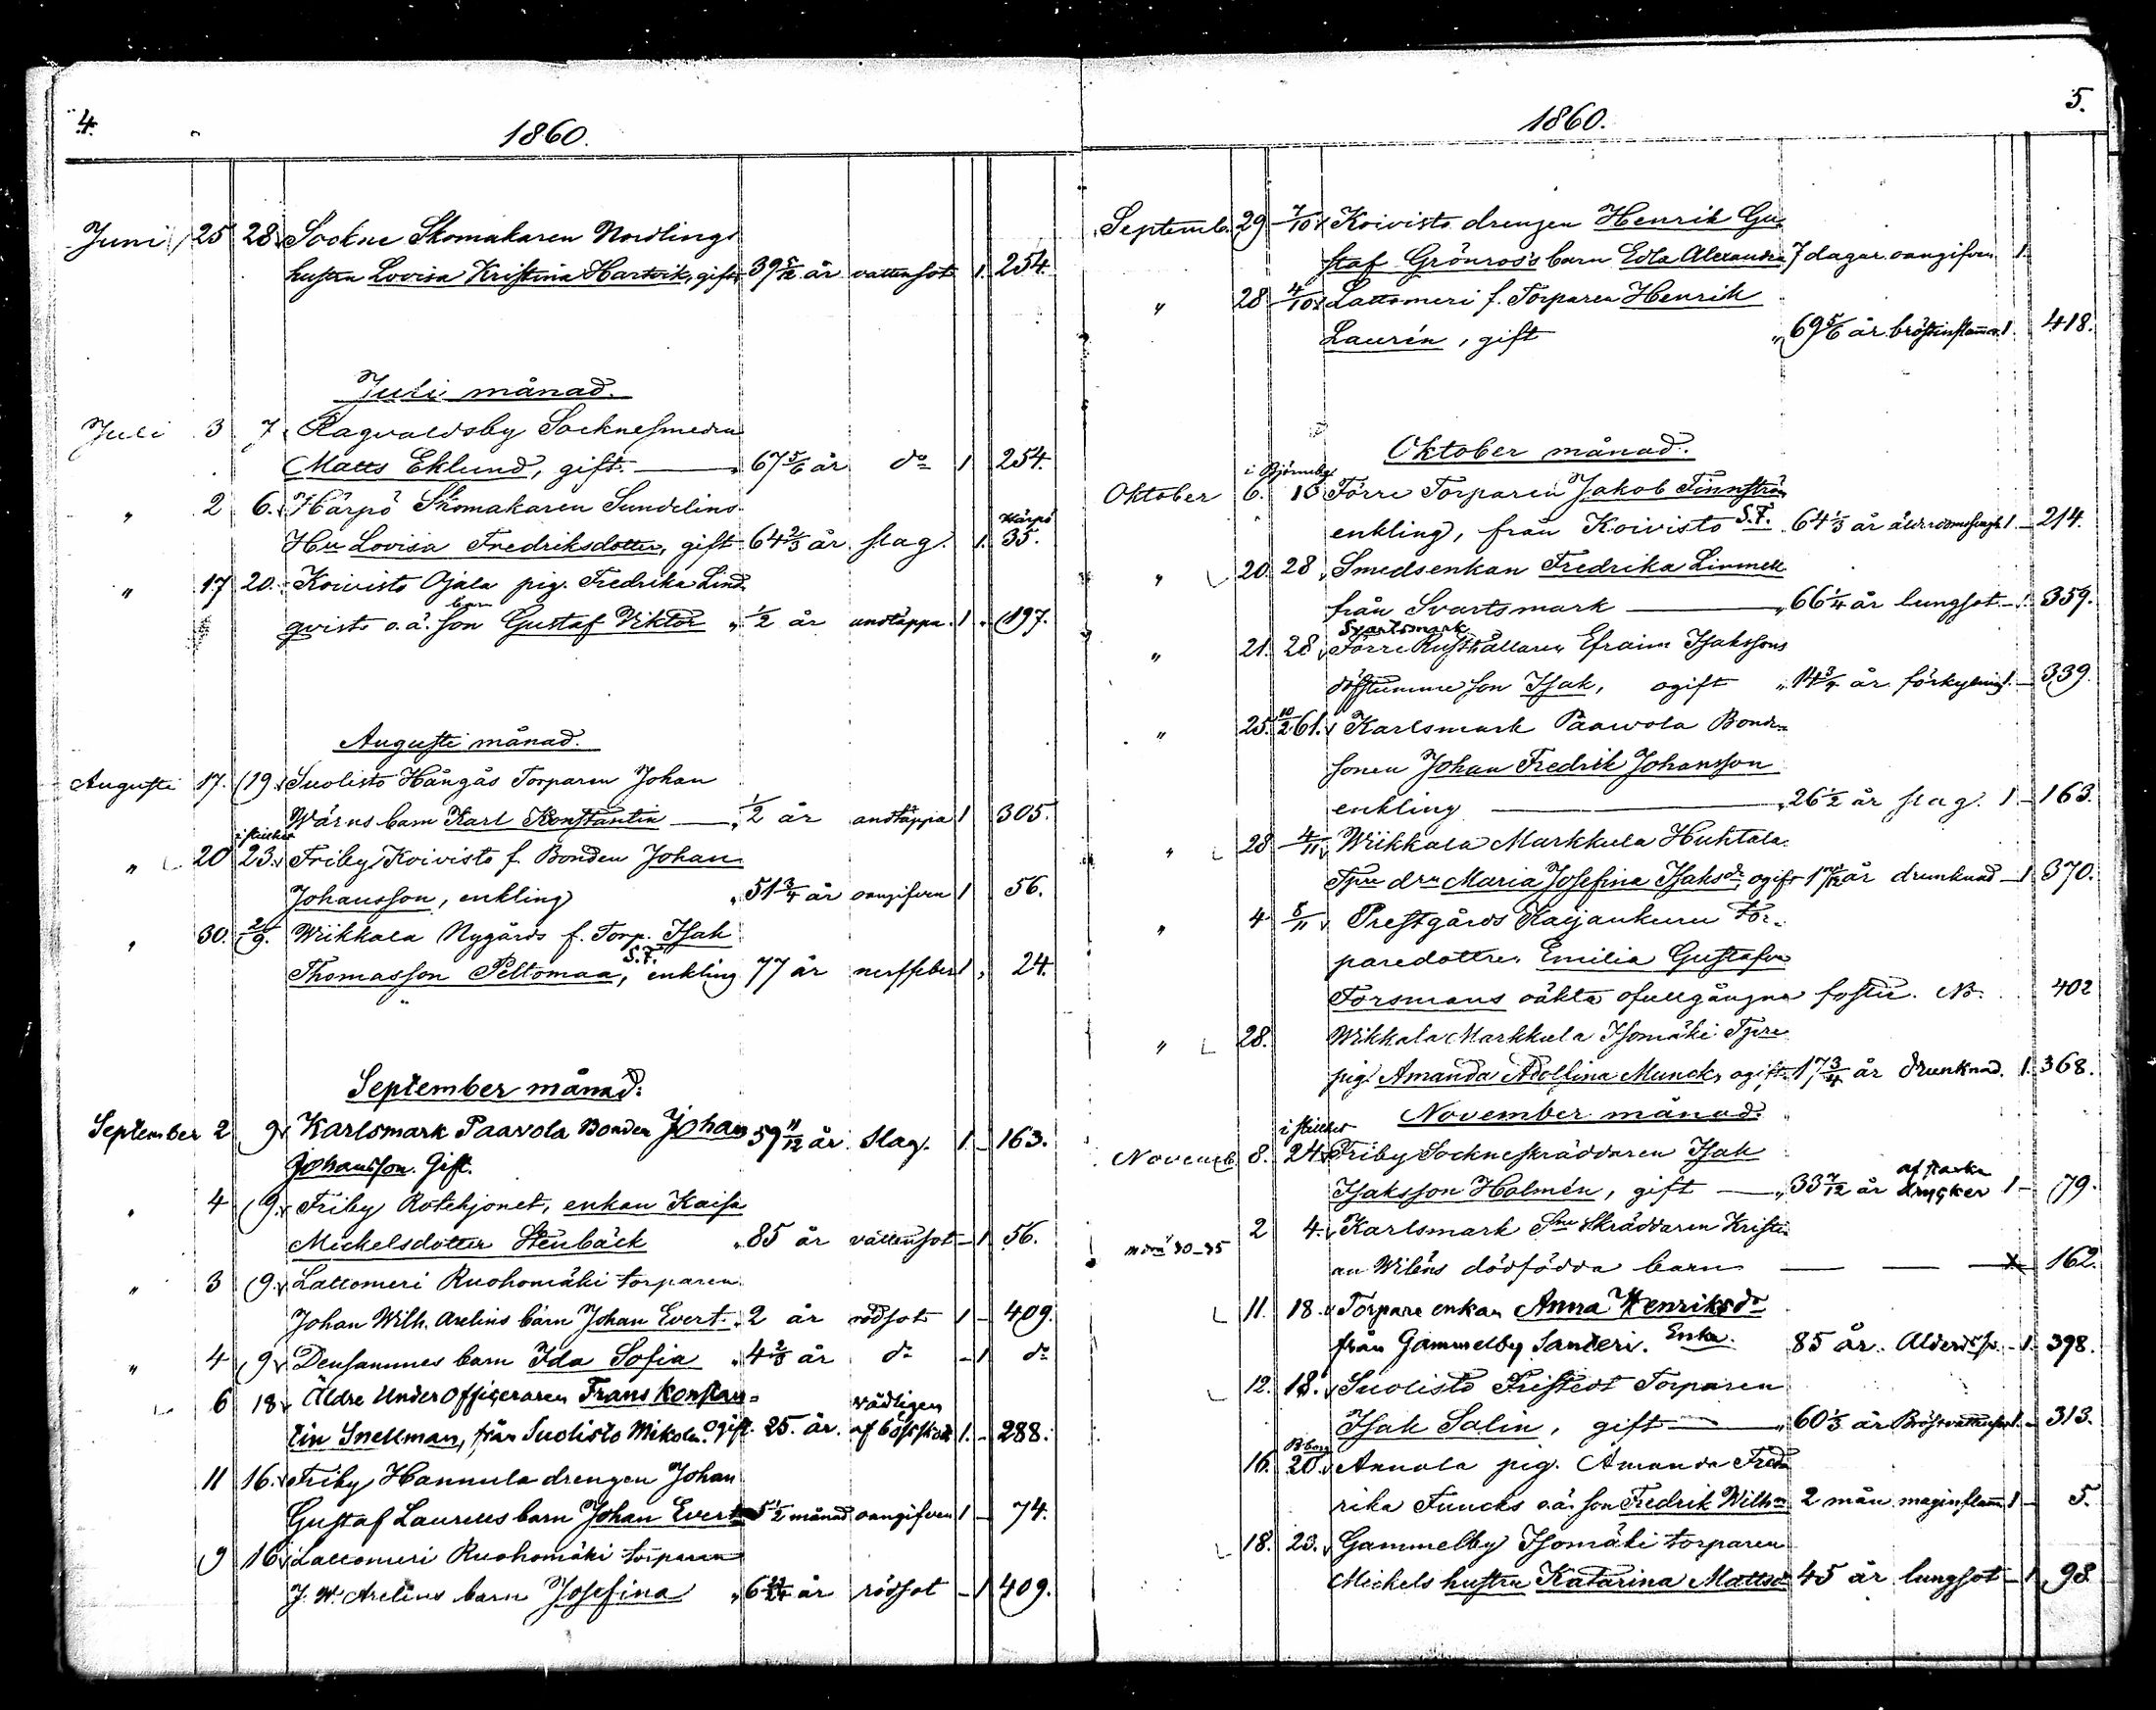 4.
1860.
Juni 25 28 Sockne Skomakaren Nordlings
hustru Lovisa Kristina Hartvik, gift 39 5/12 år vattensot 1. 254.
Juli månad.
Juli 3 7 Ragvaldsby Socknesmeden
Matts Eklund, gift. 67 5/6 år do 1 254.
" 2 6. Härpö Skomakaren Sundelins
Härpö
Hu Lovisa Fredriksdotter, gift 64 2/3 år slag. 1. 35.
" 17 20. Koivisto Ojala pig. Fredrika Lind
barn
qvists o.ä. son Gustaf Viktor " 1/2 år andtäppa. 1. 197.
Augusti månad.
Augusti 17. 19. Suolisto Hångås Torparen Johan
Wärns barn Karl Konstantin " 1/2 år andtäppa 1 305.
i stillhet
" 20 23. Friby Koivisto f. Bonden Johan
Johansson, enkling " 51 3/4 år oangifven 1 56.
" 30. 2/9. Wiikkala Nygårds f. Torp. Isak
S.F.
Thomasson Peltomaa, enkling 77 år nerffeber 1, 24.
September månad.
September 2 9 Karlsmark Paavola Bonden Johan 59 11/12 år. slag. 1 - 163.
Johansson. Gift.
" 4 9. Friby Rotehjonet, enkan Kaisa
Michelsdotter Stenbäck " 85 år vattensot - 1 56.
" 3 9. Lattomeri Ruohomäki torparen
Johan Wilh. Arelins barn Johan Evert. " 2 år rödsot 1 - 409.
" 4 9 Densammes barn Ida Sofia " 4 2/3 år do - 1 do
6 18 Äldre Underofficeraren Frans Konstan-
vådligen
tin Snellman, från Suolisto Mikola. ogift. 25. år. af bösskott 1. - 288.
11 16. Friby Hannula drengen Johan
Gustaf Laurells barn Johan Evert 5 1/2 månad oangifven 1 - 74.
9 16 Lattomeri Ruohomäki torparen
J. W. Arelins barn Josefina " 6 år rödsot - 1 409.
5.
1860.
Septemb. 29 7/10 Koivisto drengen Henrik Gu-
staf Grönros's barn Edla Alexandra 7 dagar oangifven 1.
" 28 4/10 Lattomeri f. Torparen Henrik
Laurén, gift " 69 5/6 år bröstinflamma. 1. 418.
Oktober månad.
i Björneborg
Oktober 6. 10 Förre Torparen Jakob Finnström
enkling, från Koivisto S.F. 64 1/3 år ålderdomssvagh. 1. - 214.
" 20. 28 Smedsenkan Fredrika Linnell
från Svartsmark " 66 1/4 år lungsot - 1. 359.
Svartsmark
" 21. 28 Förre Rusthållaren Efraim Isakssons
döfstumme son Isak, ogift " 14 3/4 år förkylning 1. - 339.
" 25. 10/2 61. Karlsmark Paavola Bonde-
sonen Johan Fredrik Johansson
enkling " 26 1/2 år slag. 1 - 163.
" 28 4/11 Wiikkala Markkula Huhtala
Tpre dr Maria Josefina Isaksdr, ogift 17 år drunknad - 1 370.
" 4 8/11 Prestgårds Karjankuru Tor-
paredottren Emilia Gustafva
Forsmans oäkta ofullgångna foster. No. 402
" 28. Wikkala Markkula Isomäki Tpre
pig. Amanda Adolfina Munck, ogift. 17 3/4 år drunknad. 1. 368.
November månad.
i stillhet
Novemb. 8. 24 Friby Sockneskräddaren Isak
af starka
Isaksson Holmén, gift " 33 7/12 år drycker 1 - 79.
2 4. Karlsmark Sne Skräddaren Kristi-
30-35
an Wiléns dödfödda barn x 162.
11. 18. Torpare enkan Anna Henriksdr
från Gammelby Santeri. Enka. 85 år. Alderds. - 1. 398.
12. 18. Suolisto Fristedt Torparen
Isak Salin, gift " 60 1/3 år Bröstvattusot 1. - 313.
B.borg
16. 20. Annola pig. Amanda Fred-
rika Funcks o.ä. son Fredrik Wilhm 2 mån maginflam. 1 - 5.
18. 23. Gammelby Isomäki torparen
Mickels hustru Katarina Mattsdr 45 år lungsot - 1 98.